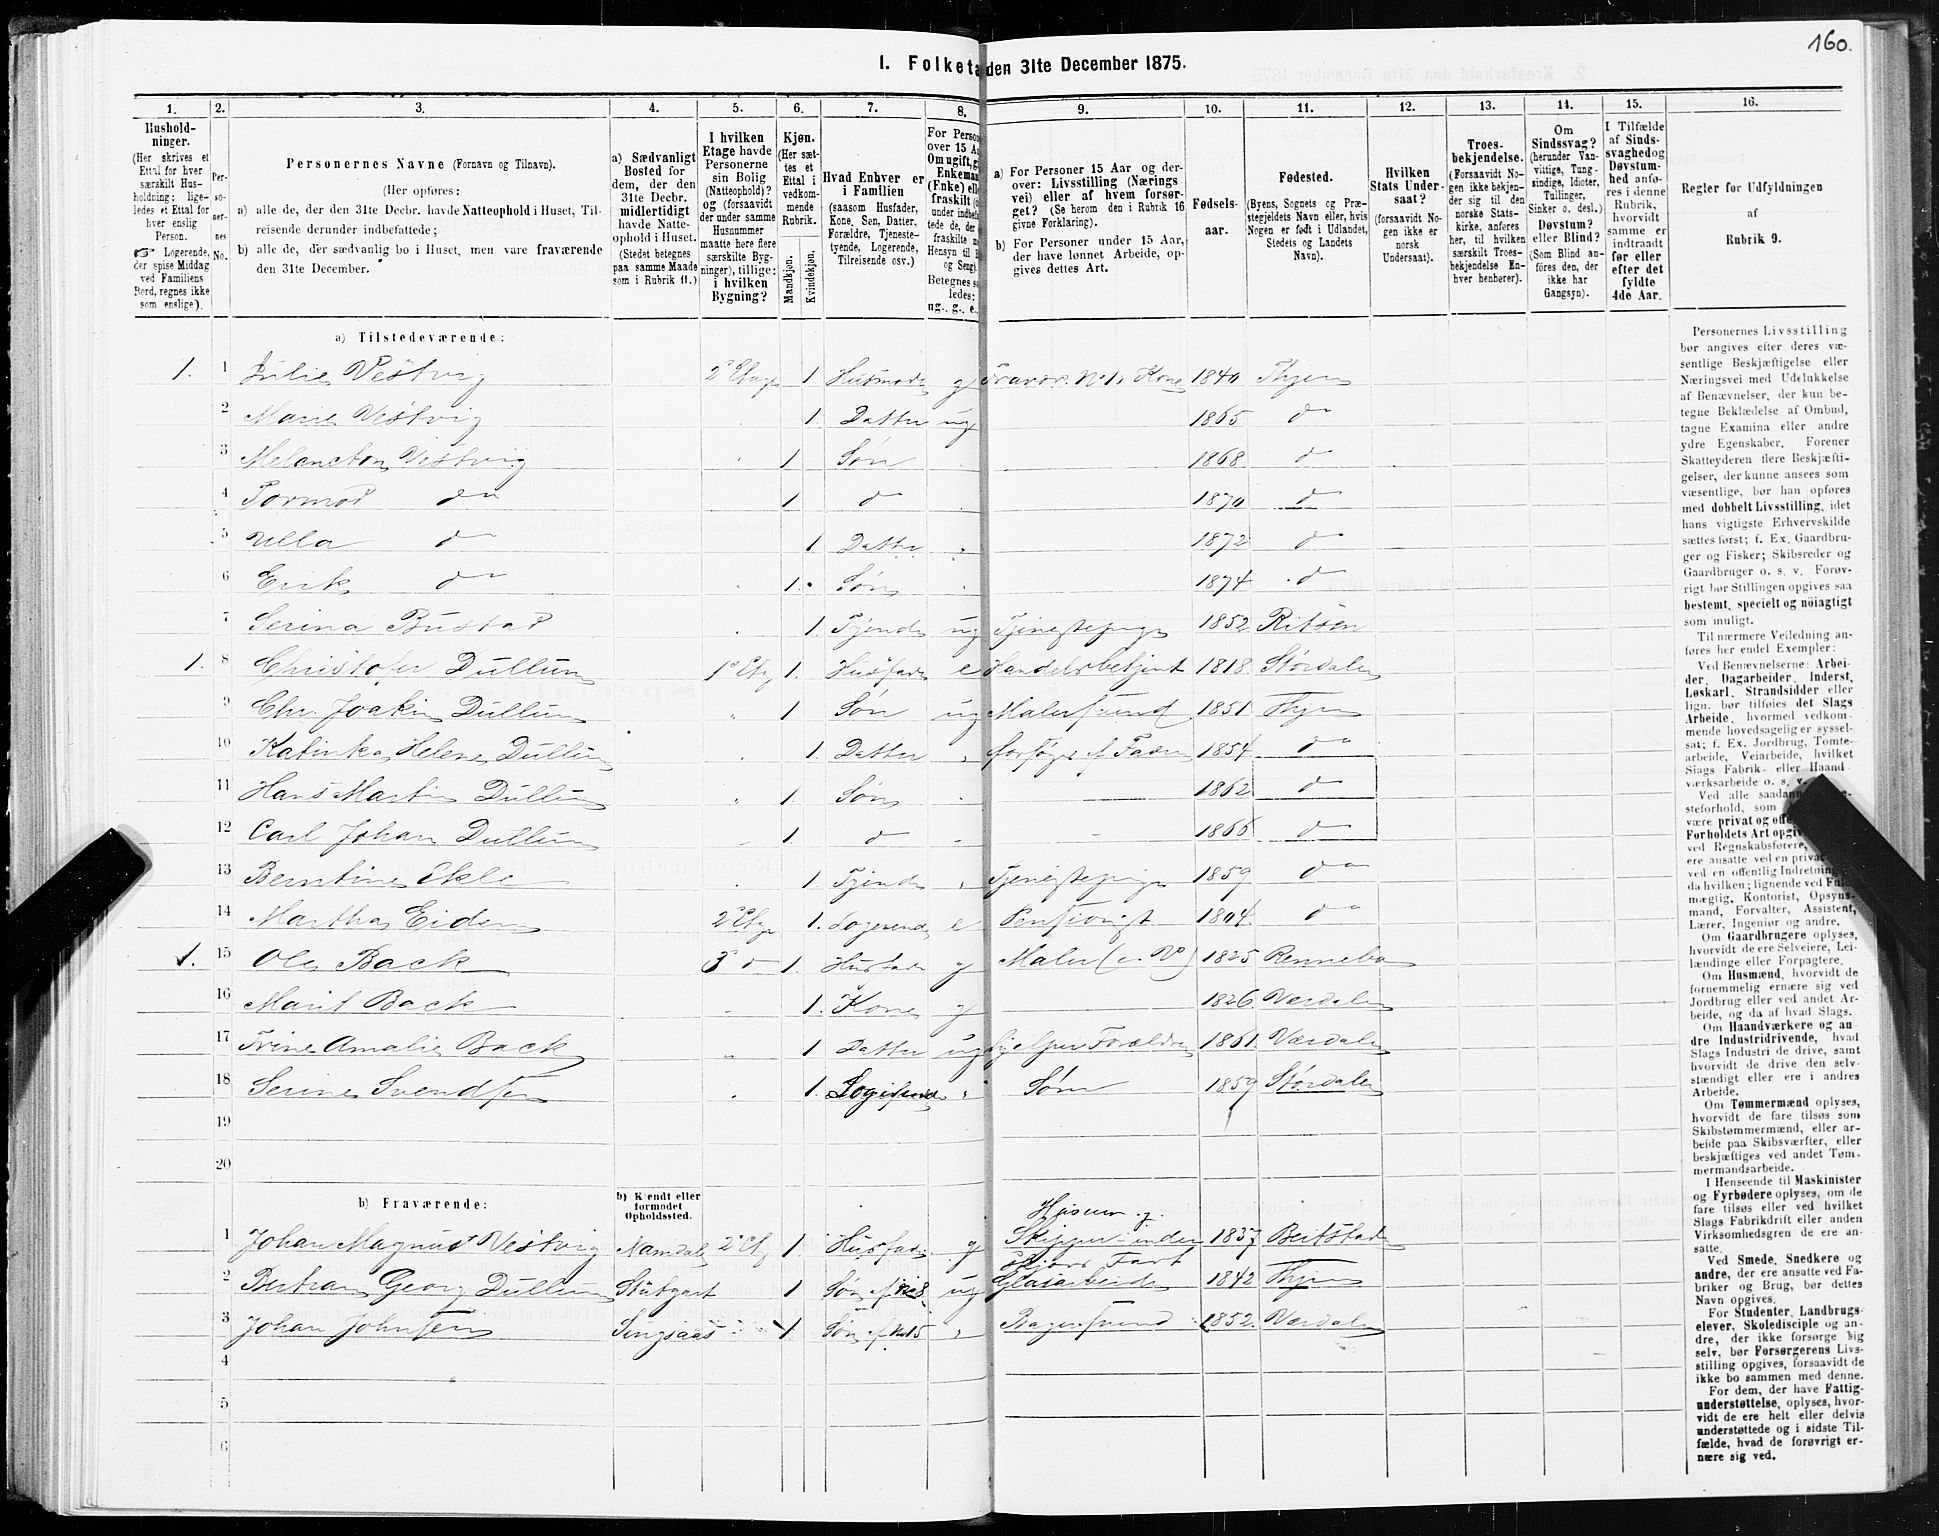 160.
1. Folketa den 31te December 1875.
1. 2. 3. 4. 5. 6. 7. 8. 9. 10. 11. 12. 13. 14. 15. 16.
Hushold-
ninger.
(Her skrives et
Ettal for hver
særskilt Hus-
holdning; lige-
ledes et Ettal for
hver enslig
Person.
☞ Logerende,
der spise Middag
ved Familiens
Bord, regnes ikke
som enslige).
Per-
so-
ner-
nes
No.
Personernes Navne (Fornavn og Tilnavn).
(Her opføres:
a) alle de, der den 31te Decbr. havde Natteophold i Huset, Til-
reisende derunder indbefattede;
b) alle de, der sædvanlig bo i Huset, men vare fraværende
den 31te December.
a) Sædvanligt
Bosted for
dem, der den
31te Decbr.
midlertidigt
havde Natte-
ophold i Huset.
(Stedet betegnes
paa samme Maade
som i Rubrik 11.)
I hvilken
Etage havde
Personerne
sin Bolig
(Natteophold)?
og (forsaavidt
der under samme
Husnummer
maatte høre flere
særskilte Byg-
ninger), tillige:
i hvilken
Bygning?
Kjøn.
(Her sæt-
tes et
Ettal i
vedkom-
mende
Rubrik.
Mandkjøn.
Kvindekjøn.
Hvad Enhver er
i Familien
(saasom Husfader,
Kone, Søn, Datter,
Forældre, Tjeneste-
tyende, Logerende,
Tilreisende osv.)
For Person
over 15 A
Om ugift, g
Enkeman
(Enke) ell
fraskilt
under indbef
tede de,
fraskilte
Hensyn til
og Seng).
Betegnes s
ledes:
ug., g., e.
a) For Personer 15 Aar og der-
over: Livsstilling (Nærings
vei) eller af hvem forsør-
get? (Se herom den i Rubrik 16
givne Forklaring).
b) For Personer under 15 Aar,
der have lønnet Arbeide, op-
gives dettes Art.
Fødsels-
aar.
Fødested.
(Byens, Sognets og Præ-
stegjeldets Navn eller, hvis
Nogen er født i Udlandet,
Stedets og Landets
Navn).
Hvilken
Stats Under-
saat?
(forsaavidt No-
gen ikke er
norsk
Undersaat).
Troes-
bekjendelse.
(Forsaavidt No-
gen ikke bekjen-
der sig til den
norske Stats-
kirke, anføres
her, til hvilken
særskilt Troes-
bekjendelse En-
hver henhører).
Om
Sindssvag?
(herunder Van-
vittige, Tung-
sindige, Idioter,
Tullinger,
Sinker o. desl.)
Døvstum?
eller Blind?
(Som Blind an-
føres den, der
ikke har
Gangsyn).
I Tilfælde
af Sinds-
svaghed og
Døvstum-
hed anfø-
res i denne
Rubrik,
hvorvidt
samme er
indtraadt
før eller
efter det
fyldte
4de Aar.
Regler for Udfyldningen
af
Rubrik 9.
a) Tilstedeværende:
1. 1 Julie Vestvig 2 Etage 1 Husmoder g Fravær. No 1s Kone 1840 Thjem
2 Marie Vestvig 1. Datter ug 1865 do
3 Melancton Vestvig 1 Søn 1868 do
4 Tormod do 1 do 1870 do
5 Ulla do 1 Datter 1872 do
6 Erik do 1. Søn 1874 do
7 Serina Bustad 1. Tjende ug Tjenestepige 1852 Ritsen
1. 8 Christofer Dullum 1 Etg 1. Husfader e Handelsbetjent 1818. Størdalen
9 Chr. Joakim Dullum 1 Søn ug Malersvend 1851 Thjem
10 Katinka Helene Dullum 1. Datter forsørges af Fader 1854 do
11 Hans Martin Dullum 1. Søn 1862 do
12 Carl Johan Dullum 1 do 1866 do
13 Berntine Ekle 1. Tjende Tjenestepige 1859 do
14 Martha Eidem 2 Etge 1. Logerende e Pensionist 1804. do
1. 15 Ole Back 3 d 1. Husfader g Maler 1825 Rennebo
16 Marit Back 1. Kone g 1826. Værdalen
17 Trine Amalie Back 1 Datter ug hjelper Forældre 1861. Værdalen
18 Serine Svendsen 1. Logerende Søm 1859 Størdalen
19
20
b) Fraværende:
b) Kjendt eller
formodet
Opholdssted.
1 Johan Magnus Vestvig Namdal 2 Etg 1. Husfader g Huseier og
Skipper inden 1837 Beitstaden
2 Bertran Georg Dullum Stutgart 1 Søn af No 8 ug Glasarbeider 1842 Thjem
3 Johan Johnsen Singsaas 1 Søn af No 15 Bagersvend 1852. Værdalen
4
5
6
Personernes Livsstilling
bør angives efter deres væ-
sentlige Beskjæftigelse eller
Næringsvei med Udelukkelse
af Benævnelser, der kun be-
tegne Beklædelse af Ombud,
tagne Examina eller andre
ydre Egenskaber. Forener
Skatteyderen flere Beskjæfti-
gelser, der kunne ansees som
væsentlige, bør han opføres
med dobbelt Livsstilling, idet
hans vigtigste Erhvervskilde
sættes først; f. Ex. Gaardbru-
ger og Fisker; Skibsreder og
Gaardbruger o. s. v. Forøv-
rigt bør Stillingen opgives saa
bestemt, specielt og nøiagtigt
som muligt.
Til nærmere Veiledning an-
føres her endel Exempler:
Ved Benævnelserne: Arbei-
der, Dagarbeider, Inderst,
Løskarl, Strandsidder eller
lign. bør tilføies det Slags
Arbeide, hvormed vedkom-
mende hovedsagelig er syssel-
sat; f. Ex. Jordbrug, Tomte-
arbeide, Veiarbeide, hvilket
Slags Fabrik- eller Haand-
værksarbeide o. s. v.
Ved alle saadan
steforhold, som
være privat og offe
Forholdets Art opgiv
ved Regnskabsførere,
ere ansatte ved en privat
ved en offentlig Indretning
da hvilken; lignende ved Fuld-
mægtig, Kontorist, Opsyns-
mand, Forvalter, Assistent,
Lærer, Ingeniør og andre.
Om Gaardbrugere oplyses,
hvorvidt de ere Selveiere, Lei-
lændinge eller Forpagtere.
Om Husmænd, hvorvidt de
fornemmelig ernære sig ved
Jordbrug eller ved andet Ar-
beide, og da af hvad Slags.
Om Haandværkere og an
dre Industridrivende, hvad
Slags Industri de drive, samt
hvorvidt de drive den selv-
stændigt eller ere i andres
Arbeide.
Om Tømmermænd oplyses,
hvorvidt de fare tilsøs som
Skibstømmermænd, eller ar-
beide paa Skibsværfter, eller
beskjæftiges ved andet Tøm-
mermandsarbeide.
I Henseende til Maskinister
og Fyrbødere oplyses, om de
fare tilsøs eller ved hvilket
Slags Fabrikdrift eller anden
Virksomhedsgren de ere an-
satte.
Ved Smede, Snedkere og
andre, der ere ansatte ved Fa-
briker og Brug, bør dettes
Navn opgives.
For Studenter, Landbrugs
elever, Skoledisciple og an-
dre, der ikke forsørge sig
selv, bør Forsørgerens Livs-
stilling opgives, forsaavidt de
ikke bo sammen med denne.
For dem, der have Fattig-
understøttelse, oplyses, hvor-
vidt de ere helt eller delvis
understøttede og i sidste Til-
fælde, hvad de forøvrigt er-
nære sig ved.